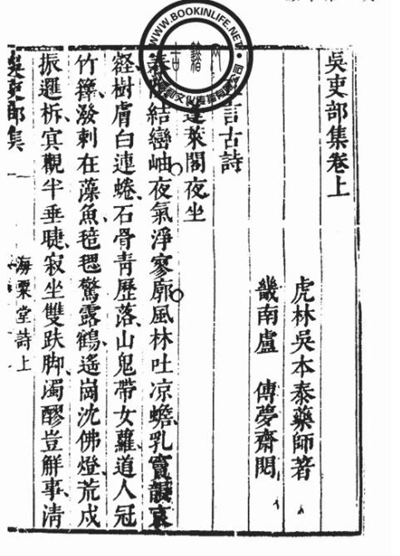 吳吏部集卷上
虎林吳本泰藥師著
畿南盧 傳夢齋閱
言古詩
蓬萊閣夜坐
結巒岫夜氣淨寥廓風林吐凉蟾乳竇韻哀
壑樹膚白連蜷石骨青歷落山鬼帶女蘿道人冠
竹籜潑剌在藻魚毰毸驚露鶴遙崗沈佛燈荒戍
振邏柝㝠觀半垂睫寂坐雙趺脚濁醪豈鮮事清
吳吏部集 一 海粟堂詩上
WWW.BOOKINLIFE.NET